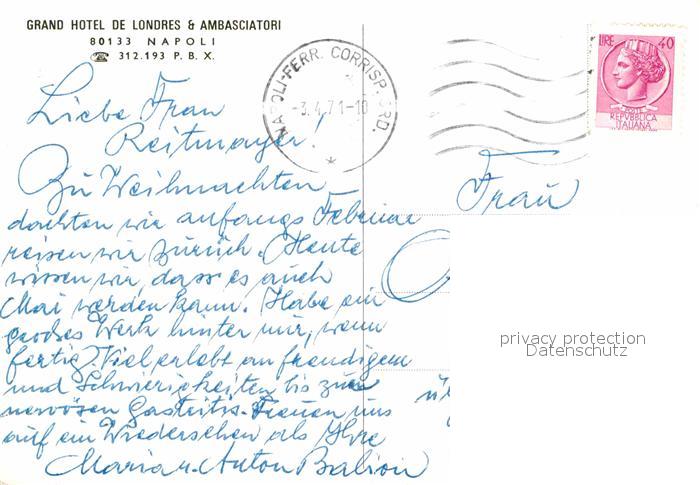 GRAND HOTEL DE LONDRES & AMBASCIATORI
80133 NAPOLI
☎ 312.193 P. B. X.
NAPOLI-FERR. CORRISP. ORD.
-3.4.71-10
LIRE 40
POSTE
REPUBBLICA
ITALIANA
Liebe Frau
Reitmayer!
Zu Weihnachten
dachten wir anfangs Februar
reisen wir zurück. Heute
wissen wir, dass es auch
Mai werden kann. Habe ein
großes Werk hinter mir, wenn
fertig. Viel erlebt an freudigem
und Schwierigkeiten bis zur
nervösen Gastritis. Freuen uns
auf ein Wiedersehen als Ihre
Maria u. Anton
Frau
privacy protection
Datenschutz